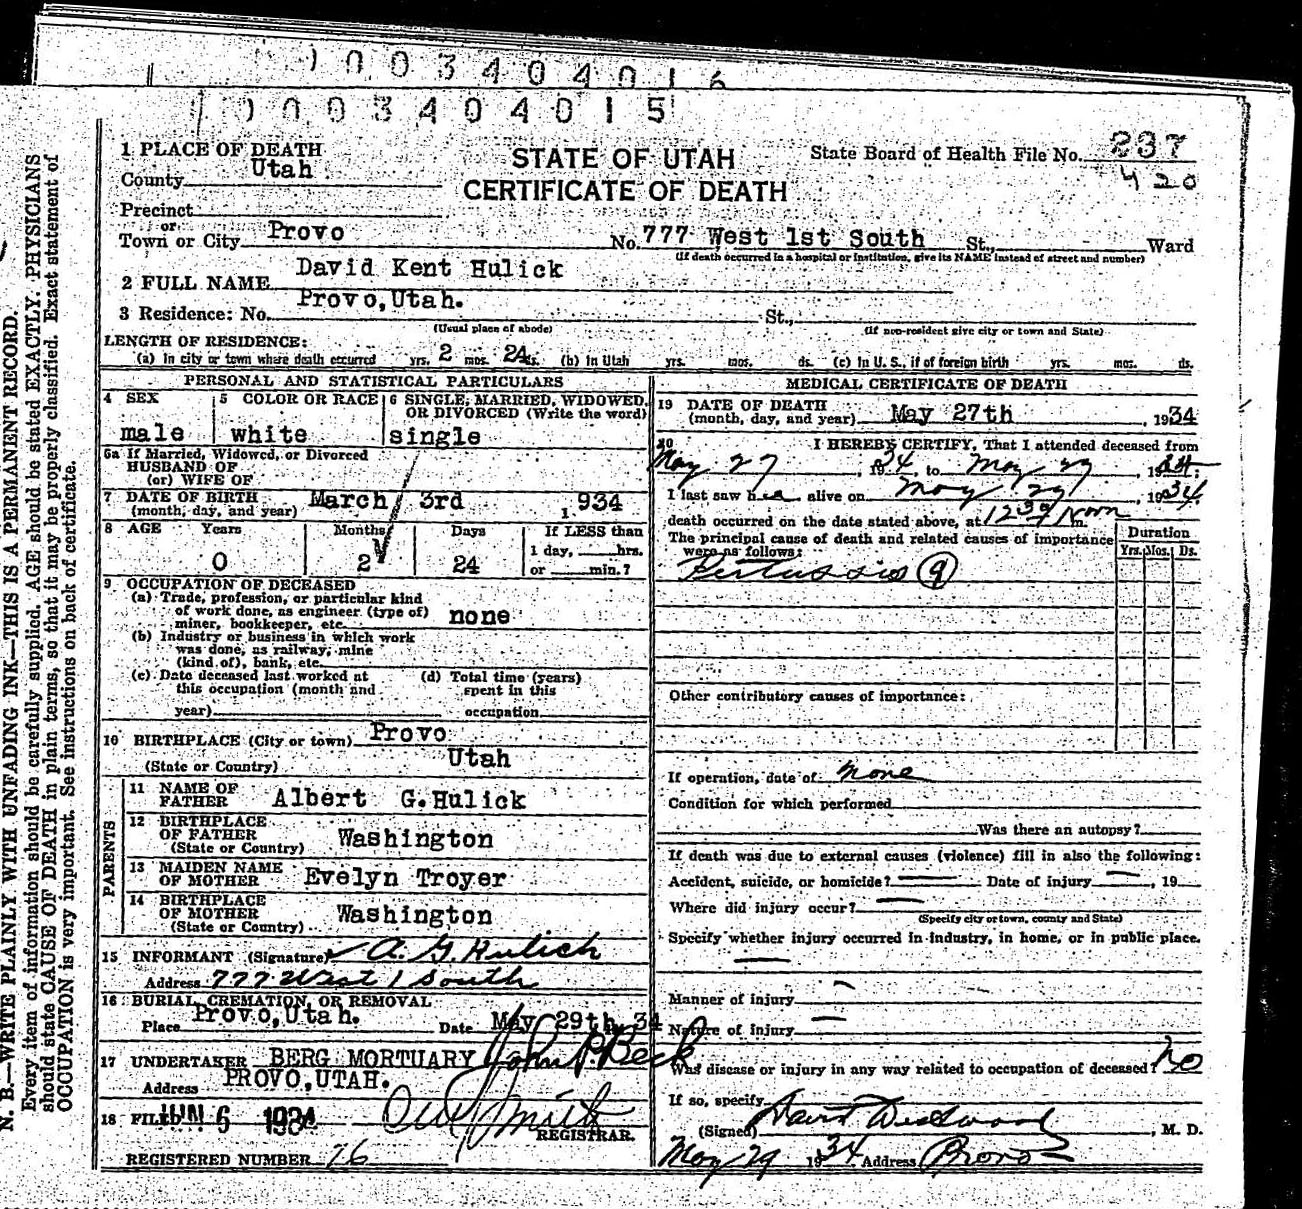 1003404016
1003404015
1 PLACE OF DEATH
County Utah
STATE OF UTAH
CERTIFICATE OF DEATH
State Board of Health File No. 237
420
Precinct
or
Town or City Provo
No. 777 West 1st South St., Ward
(If death occurred in a hospital or institution, give its NAME instead of street and number)
2 FULL NAME David Kent Hulick
3 Residence: No. Provo, Utah. St.,
(Usual place of abode) (If non-resident give city or town and State)
LENGTH OF RESIDENCE:
(a) In city or town where death occurred yrs. 2 mos. 24 ds. (b) In Utah yrs. mos. ds. (c) In U. S., if of foreign birth yrs. mos. ds.
PERSONAL AND STATISTICAL PARTICULARS
4 SEX 5 COLOR OR RACE 6 SINGLE, MARRIED, WIDOWED, OR DIVORCED (Write the word)
male white single
6a If Married, Widowed, or Divorced
HUSBAND OF
(or) WIFE OF
7 DATE OF BIRTH
(month, day, and year) March 3rd 1934
8 AGE Years Months Days If LESS than
1 day, hrs.
or min.?
0 2 24
9 OCCUPATION OF DECEASED
(a) Trade, profession, or particular kind
of work done, as engineer (type of)
miner, bookkeeper, etc. none
(b) Industry or business in which work
was done, as railway, mine
(kind of), bank, etc.
(c) Date deceased last worked at
this occupation (month and
year)
(d) Total time (years)
spent in this
occupation
10 BIRTHPLACE (City or town) Provo
(State or Country) Utah
PARENTS
11 NAME OF
FATHER Albert G. Hulick
12 BIRTHPLACE
OF FATHER Washington
(State or Country)
13 MAIDEN NAME
OF MOTHER Evelyn Troyer
14 BIRTHPLACE
OF MOTHER Washington
(State or Country)
15 INFORMANT (Signature) A. G. Hulick
Address 777 West 1 South
16 BURIAL, CREMATION, OR REMOVAL
Place Provo, Utah. Date May 29th, 34
17 UNDERTAKER BERG MORTUARY John P Beck
Address PROVO, UTAH.
18 FILED JUN 6 1934
REGISTRAR.
REGISTERED NUMBER 76
MEDICAL CERTIFICATE OF DEATH
19 DATE OF DEATH
(month, day, and year) May 27th 1934
20 I HEREBY CERTIFY, That I attended deceased from
May 27 1934, to May 27, 1934;
I last saw h alive on May 27, 1934
death occurred on the date stated above, at 12 30 Noon m.
The principal cause of death and related causes of importance
were as follows:
Duration
Yrs. Mos. Ds.
Pertussis 9
Other contributory causes of importance:
If operation, date of none
Condition for which performed
Was there an autopsy?
If death was due to external causes (violence) fill in also the following:
Accident, suicide, or homicide? Date of injury , 19
Where did injury occur?
(Specify city or town, county and State)
Specify whether injury occurred in industry, in home, or in public place.
Manner of injury
Nature of injury
Was disease or injury in any way related to occupation of deceased? no
If so, specify
(Signed) David Westwood, M. D.
May 29 1934 Address Provo
N. B.—WRITE PLAINLY WITH UNFADING INK—THIS IS A PERMANENT RECORD.
Every item of information should be carefully supplied. AGE should be stated EXACTLY. PHYSICIANS
should state CAUSE OF DEATH in plain terms, so that it may be properly classified. Exact statement of
OCCUPATION is very important. See instructions on back of certificate.